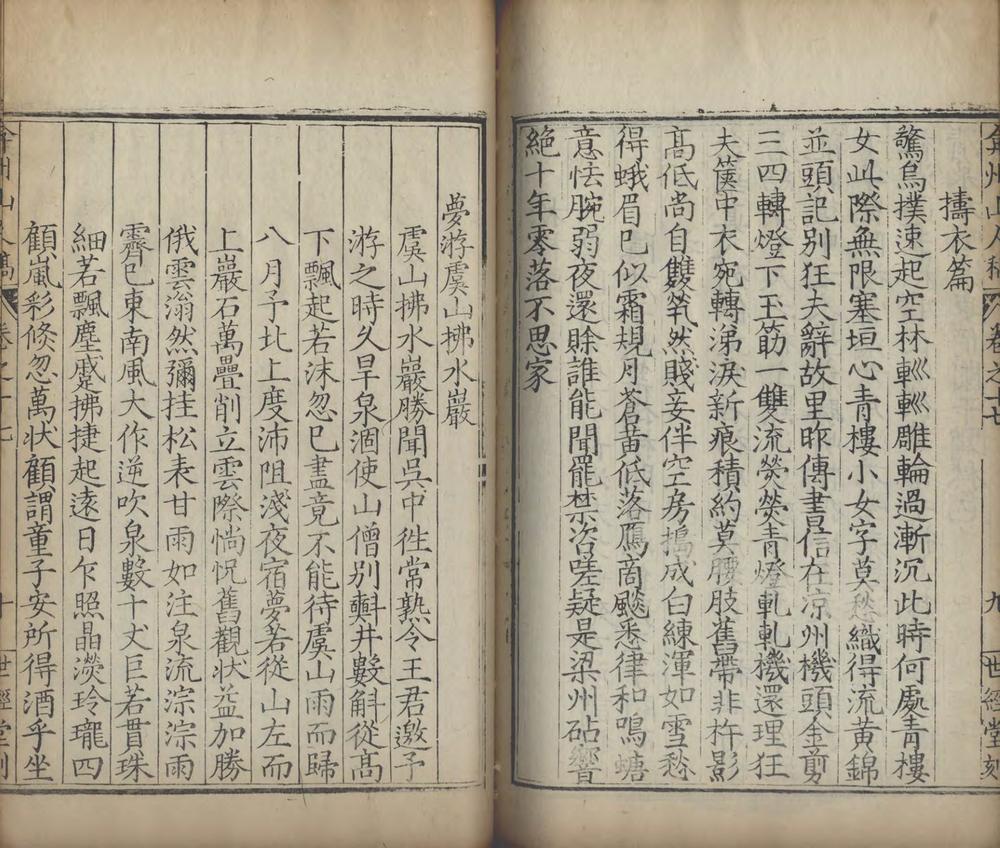 弇州山人稿 卷之十七 九 世經堂刻
擣衣篇
驚烏撲速起空林轣轣雕輪過漸沉此時何處青樓
女此際無限塞垣心青樓小女字莫愁織得流黃錦
並頭記別狂夫辭故里昨傳書信在凉州機頭金剪
三四轉燈下玉筯一雙流熒熒青燈軋軋機還理狂
夫篋中衣宛轉涕淚新痕積約莫腰肢舊帶非杵影
高低尚自雙煢然賤妾伴空房搗成白練渾如雪愁
得蛾眉已似霜規月蒼黃低落鴈商飈悉律和鳴螗
意怯腕弱夜還賖誰能聞罷禁咨嗟疑是梁州砧響
絕十年零落不思家
夢游虞山拂水巖
虞山拂水巖勝聞吳中徃常熟令王君邀予
游之時久旱泉涸使山僧別㪺井數斛從高
下飄起若沫忽已盡竟不能待虞山雨而歸
八月予北上度沛阻淺夜宿夢若從山左而
上巖石萬疊削立雲際惝怳舊觀狀益加勝
俄雲滃然彌挂松表甘雨如注泉流淙淙雨
霽已東南風大作逆吹泉數十丈巨若貫珠
細若飄塵戚蹙拂捷起遠日乍照晶濙玲瓏四
顧嵐彩倐忽萬狀顧謂童子安所得酒乎坐
弇州山人稿 卷之十七 十 世經堂刻